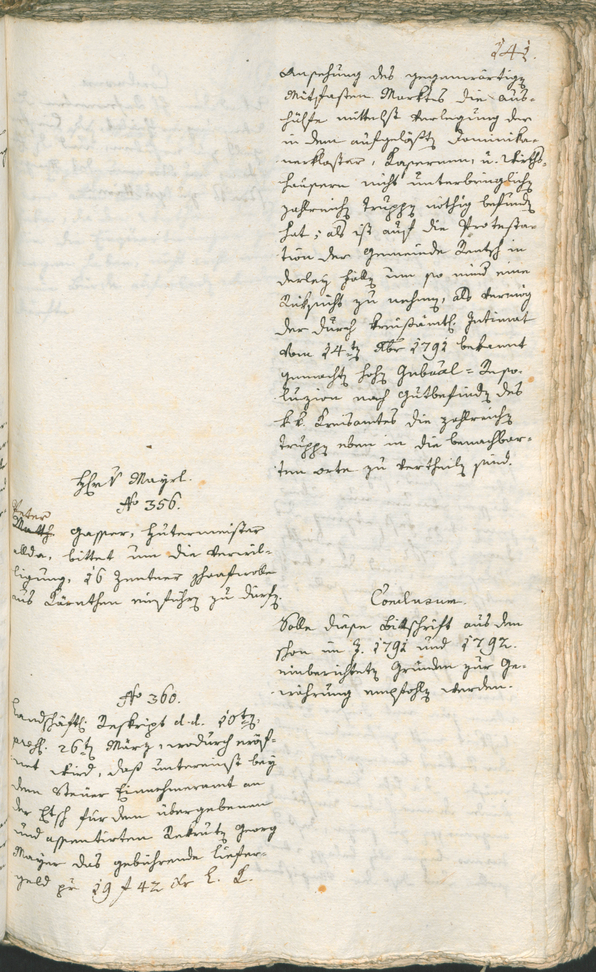 141.
Ansehung des gegenwärtigen
Mitfasten Markts die aus-
hülfe mittelst Verlegung der
in dem aufgelößten Dominika-
nerkloster, Kasernen, u. Wirths-
häusern nicht unterbringlichen
zahlreichen Truppen nöthig befunden
hat; als ist auf die Protesta-
tion der Gemeinde in
derley Fällen um so minder eine
Rücksicht zu nehmen, als vermög
der durch kreisämtl. Intimat
vom 14ten Xbr 1791 bekannt
gemachten hohen Gubernial-Reso-
luzion nach Gutbefinden des
k. k. Kreisamtes die zahlreichen
Truppen eben in die benachbar-
ten Orte zu vertheilen sind.
Hr. v Mayrl.
No 356.
Peter
Gasser, Hutermeister
allda, bittet um die Verwil-
ligung, 16 Zentner Schafwolle
aus Kärnthen einführen zu dürfen.
Conclusum.
Solle diese Bittschrift aus den
schon im J. 1791 und 1792.
einberichteten Gründen zur Ge-
währung empfohlen werden.
No 360.
Landschäftl. Reskript d. d. 10ten,
praes. 26ten März, wodurch eröf-
net wird, daß untereinst bey
dem Steuer Einnehmeramt an
der Etsch für den übergebenen
und assentirten Rekruten Georg
Mayr das gebührende Liefer-
geld pr 19 f 42 xr